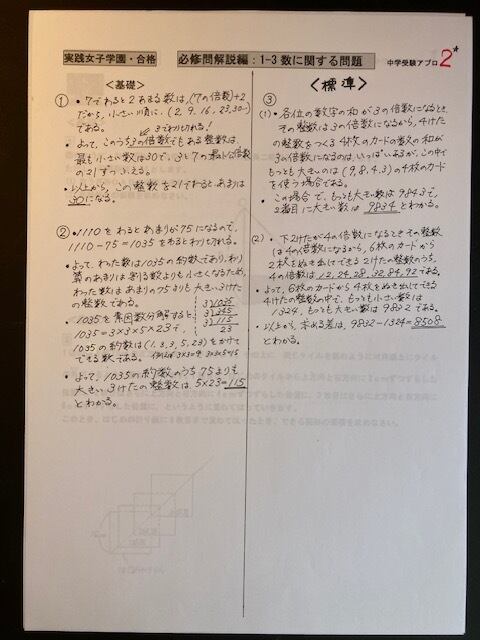 実践女子学園・合格
必修問解説編：1-3 数に関する問題
中学受験アブロ 2*
＜基礎＞
① ・7でわると2あまる数は、(7の倍数)+2
だから、小さい順に、(2, 9, 16, 23, 30…)
である。
3でわりきれる!
・よって、このうち3の倍数でもある整数は、
最も小さい数は30で、3と7の最小公倍数
の21ずつふえる。
・以上から、この整数を21でわるとあまりは
30になる。
② ・1110をわるとあまりが75になるので、
1110-75=1035をわるとわりきれる。
・よって、わった数は1035の約数であり、わり
算のあまりは割る数よりも小さくなるため、
わった数はあまりの75よりも大きい3けた
の整数である。
・1035を素因数分解すると、
1035=3×3×5×23で、
3)1035
3)345
5)115
23
1035の約数は(1, 3, 3, 5, 23)をかけて
できる数である。
例えば3×3=9 3×3×5=45
・よって、1035の約数のうち75よりも
大きい3けたの整数は、5×23=115
とわかる。
＜標準＞
③
(1) ・各位の数字の和が3の倍数になるとき、
その整数は3の倍数になるから、4けた
の整数をつくる4枚のカードの数の和が
3の倍数になるのは、いっぱいあるが、この中で
もっとも大きいのは(9, 8, 4, 3)の4枚のカード
を使う場合である。
・この場合で、もっとも大きい数は9843で、
2番目に大きい数は 9834 とわかる。
(2) ・下2けたが4の倍数になるときその整数
は4の倍数になるから、6枚のカードから
2枚をぬき出してできる2けたの整数のうち、
4の倍数は12, 24, 28, 32, 84, 92である。
・よって、6枚のカードから4枚をぬき出してできる
4けたの整数の中で、もっとも小さい数は
1324、もっとも大きい数は9832である。
・以上から、求める差は、9832-1324=8508
とわかる。